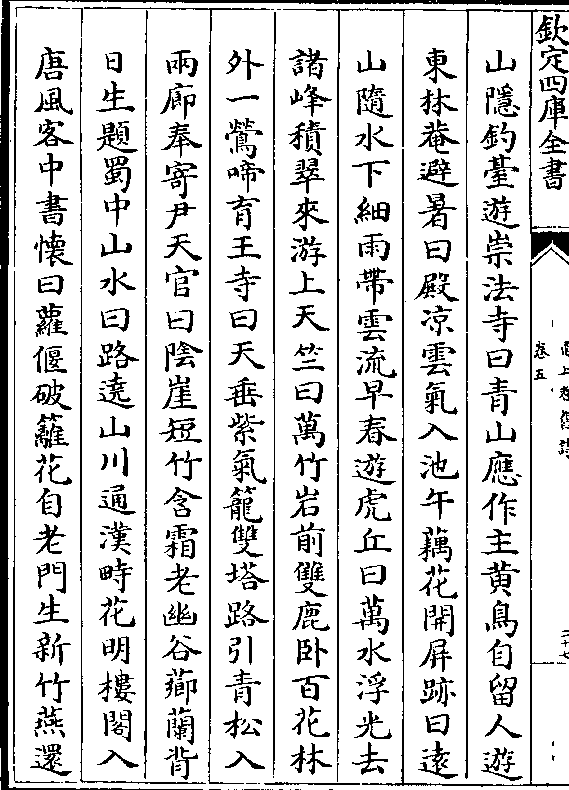 欽定四庫全書
卷五
山隱釣臺遊崇法寺曰青山應作主黄鳥自留人遊
東林菴避暑曰殿凉雲氣入池午藕花開屏跡曰遠
山隨水下細雨帶雲流早春遊虎丘曰萬水浮光去
諸峰積翠來游上天竺曰萬竹岩前雙鹿卧百花林
外一鶯啼育王寺曰天垂紫氣籠雙塔路引青松入
兩廊奉寄尹天官曰陰崖短竹含霜老幽谷薌蘭背
日生題蜀中山水曰路遶山川通漢畤花明樓閣入
唐風客中書懷曰蘿偃破籬花自老門生新竹燕還